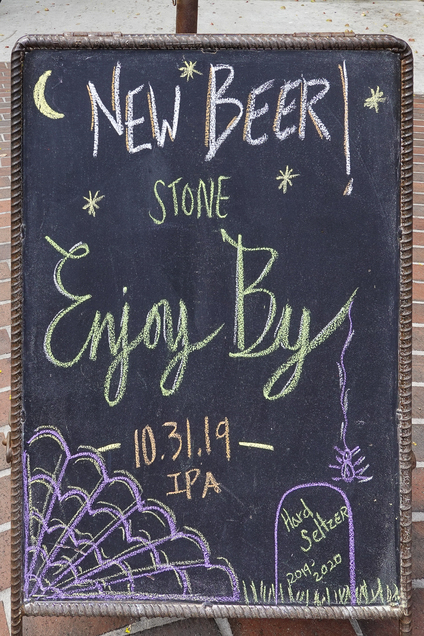 NEW BEER!
STONE
Enjoy By
- 10.31.19 -
IPA
Hard
Seltzer
2019-2020